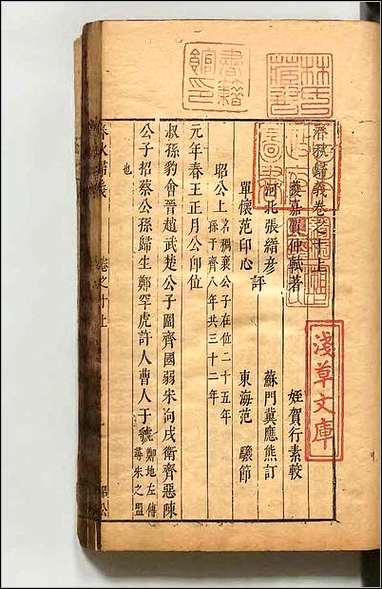 春秋歸義卷之十上
賀仲軾著 姪賀行素較
河北張縉彥 評 蘇門冀應熊訂
單懷范印心 東海范 驤節
昭公上 名稠襄公子在位二十五年孫于齊八年共三十二年
元年春王正月公卽位
叔孫豹會晉趙武楚公子圍齊國弱宋向戌衛齊惡陳
公子招蔡公孫歸生鄭罕虎許人曹人于虢 鄭地左傳尋宋之盟
也
春秋歸義 卷之十上
淺草文庫
書籍館印
林氏藏書